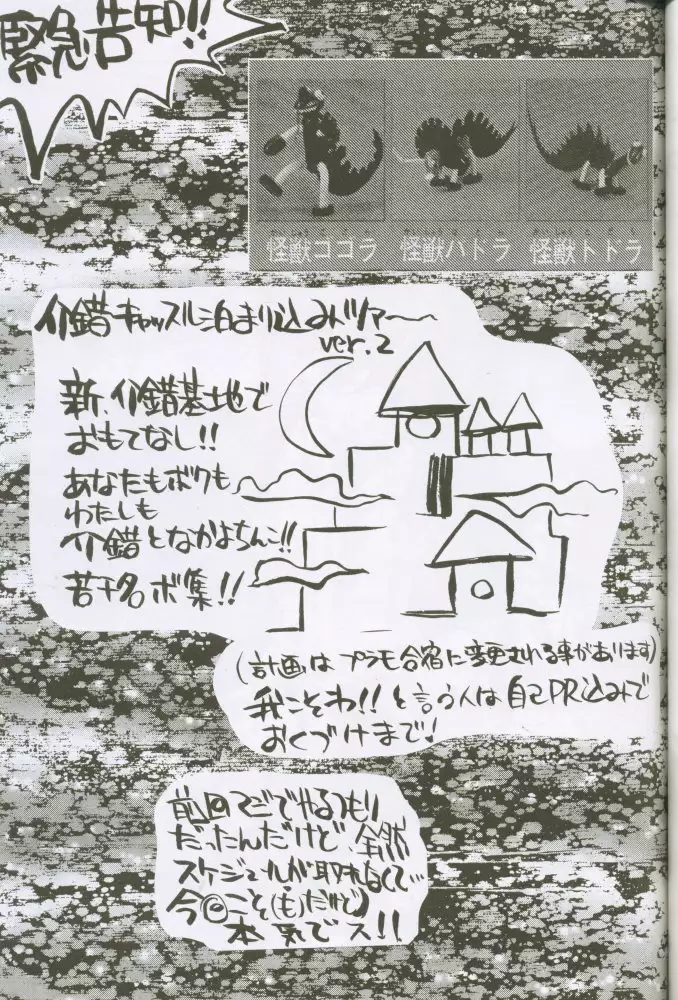 緊急告知!!
怪獣ゴゴラ 怪獣バドラ 怪獣トドラ
介錯キャッスル泊まり込みツアー〜
ver.2
新、介錯基地で
おもてなし!!
あなたもボクも
わたしも
介錯となかよちんこ!!
若干名ボ集!!
(計画はプラモ合宿に変更される事があります)
我こそわ!!と言う人は自己PR込みで
おくづけまで!
前回マジでやるつもり
だったんだけど、全然
スケジュールが取れなくて…
今回こそ(も)だけど
本気でス!!